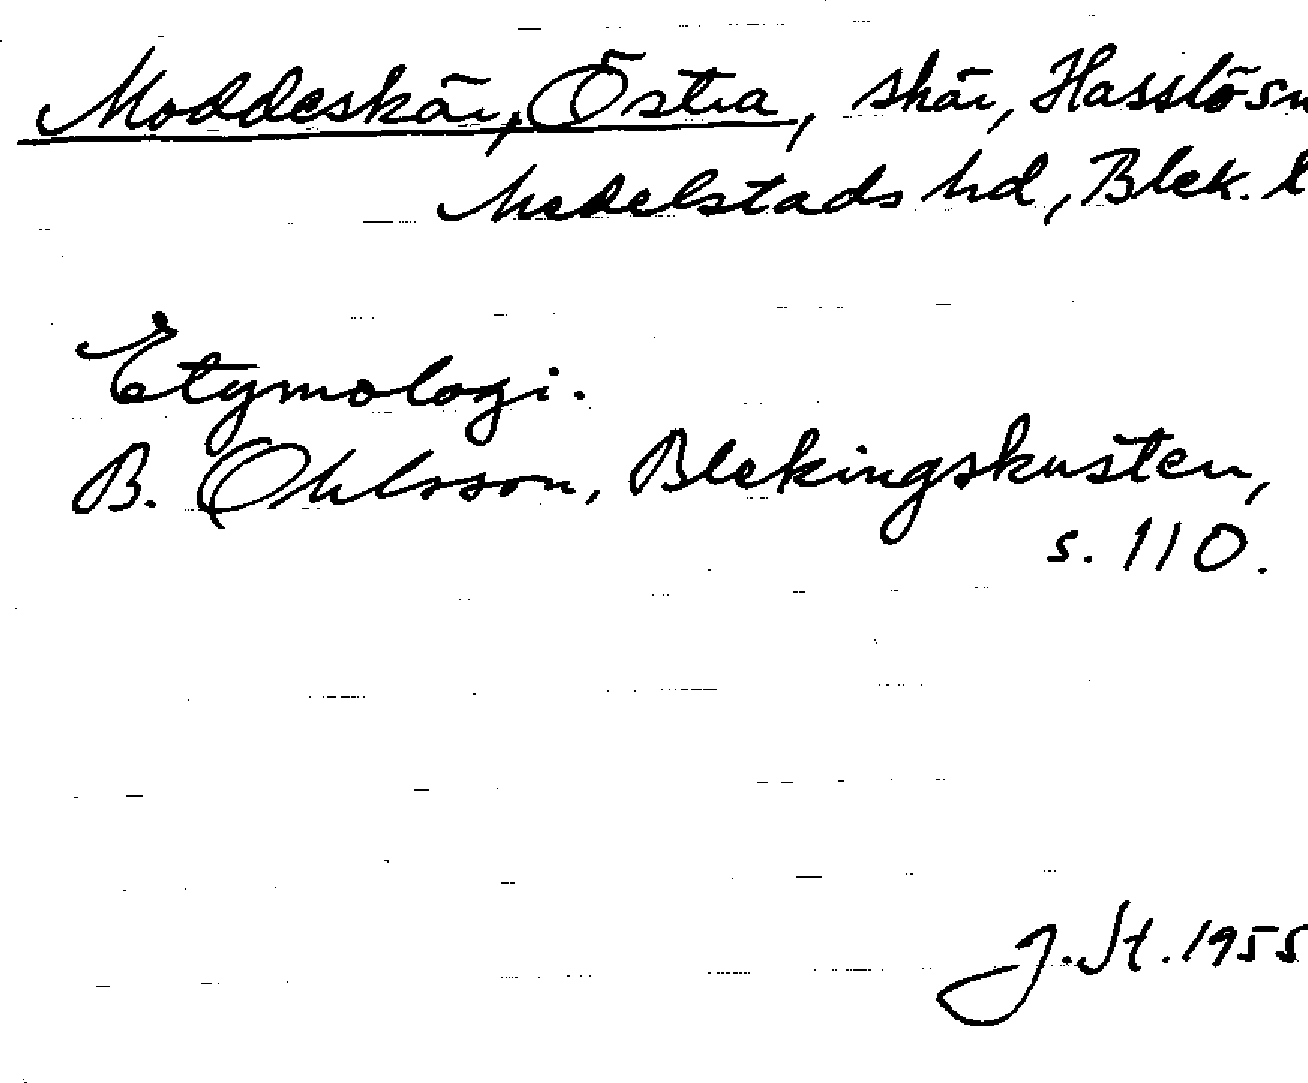 Moddeskär, Östra, skär, Hasslösn
Medelstads hd, Blek. l
Etymologi.
B. Ohlsson, Blekingskusten,
s. 110.
J. St. 1955